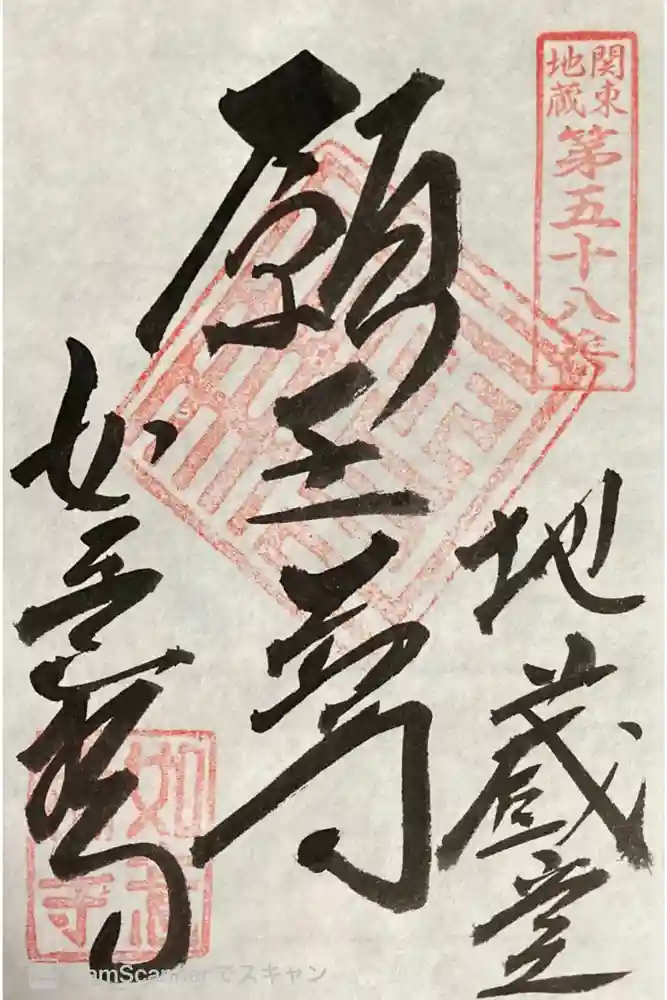 関東
地蔵
第五十八番
地蔵堂
願王尊
如意輪寺
如意
輪寺
CamScannerでスキャン